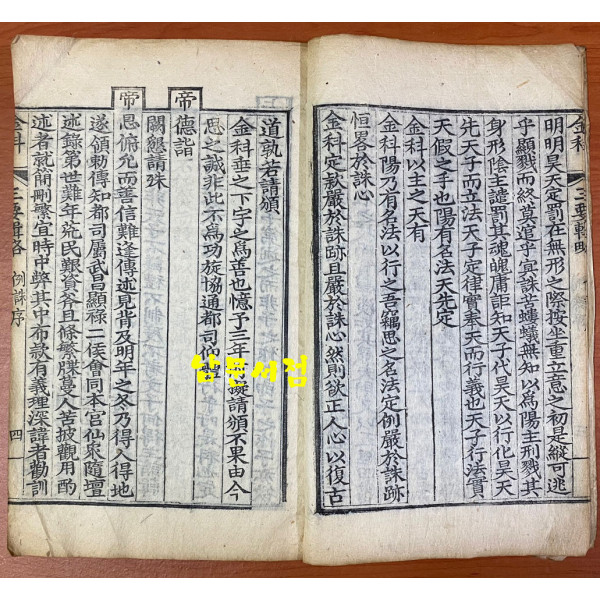 明明昊天定罰在無形之際按坐重立意之初是縱可逃
乎顯戮而終莫逭乎冥誅苦螻蟻無知以為陽主刑戮其
身形陰主譴罰其魂魄庸詎知天子代昊天以行化昊天
先天子而立法天子定律實奉天而行義也天子行法實
天假之手也陽有名法天先定
金科以主之天有
金科陽乃有名法以行之吾竊思之名法定例嚴於誅跡
金科定款嚴於誅跡且嚴於誅心然則欲正人心以復古
恒畧於誅心
道孰若請頒
金科垂之下字之為善也憶予三年前擬請頒不果由今
思之誠非此不為功旋協通都司仰體
帝
德詣
闕懇請殊
帝
恩俯允而善信難逢傳述見背及明年之冬乃得入得地
遂領勅傳知都司屬武昌顯祿二侯會同本官仙衆隨壇
述錄第世難年荒民艱資斧且條繁牒蔓人苦披觀用酌
述者就簡刪繁宜時中弊其中布款有義理深諱者勸訓
金科
三要輯略
例誅序
四
남문서점